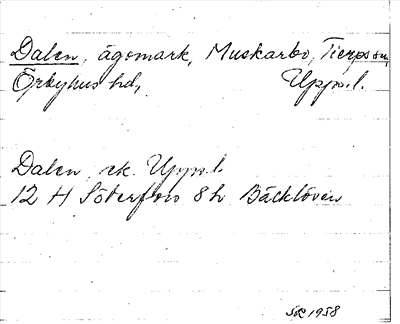 Dalen, ägomark, Muskarbo, Tierps sn,
Örbyhus hd, Upps. l.
Dalen, ek. Upps. l.
12 H Söderfors 8 h Bäcklösen
SOL 1958